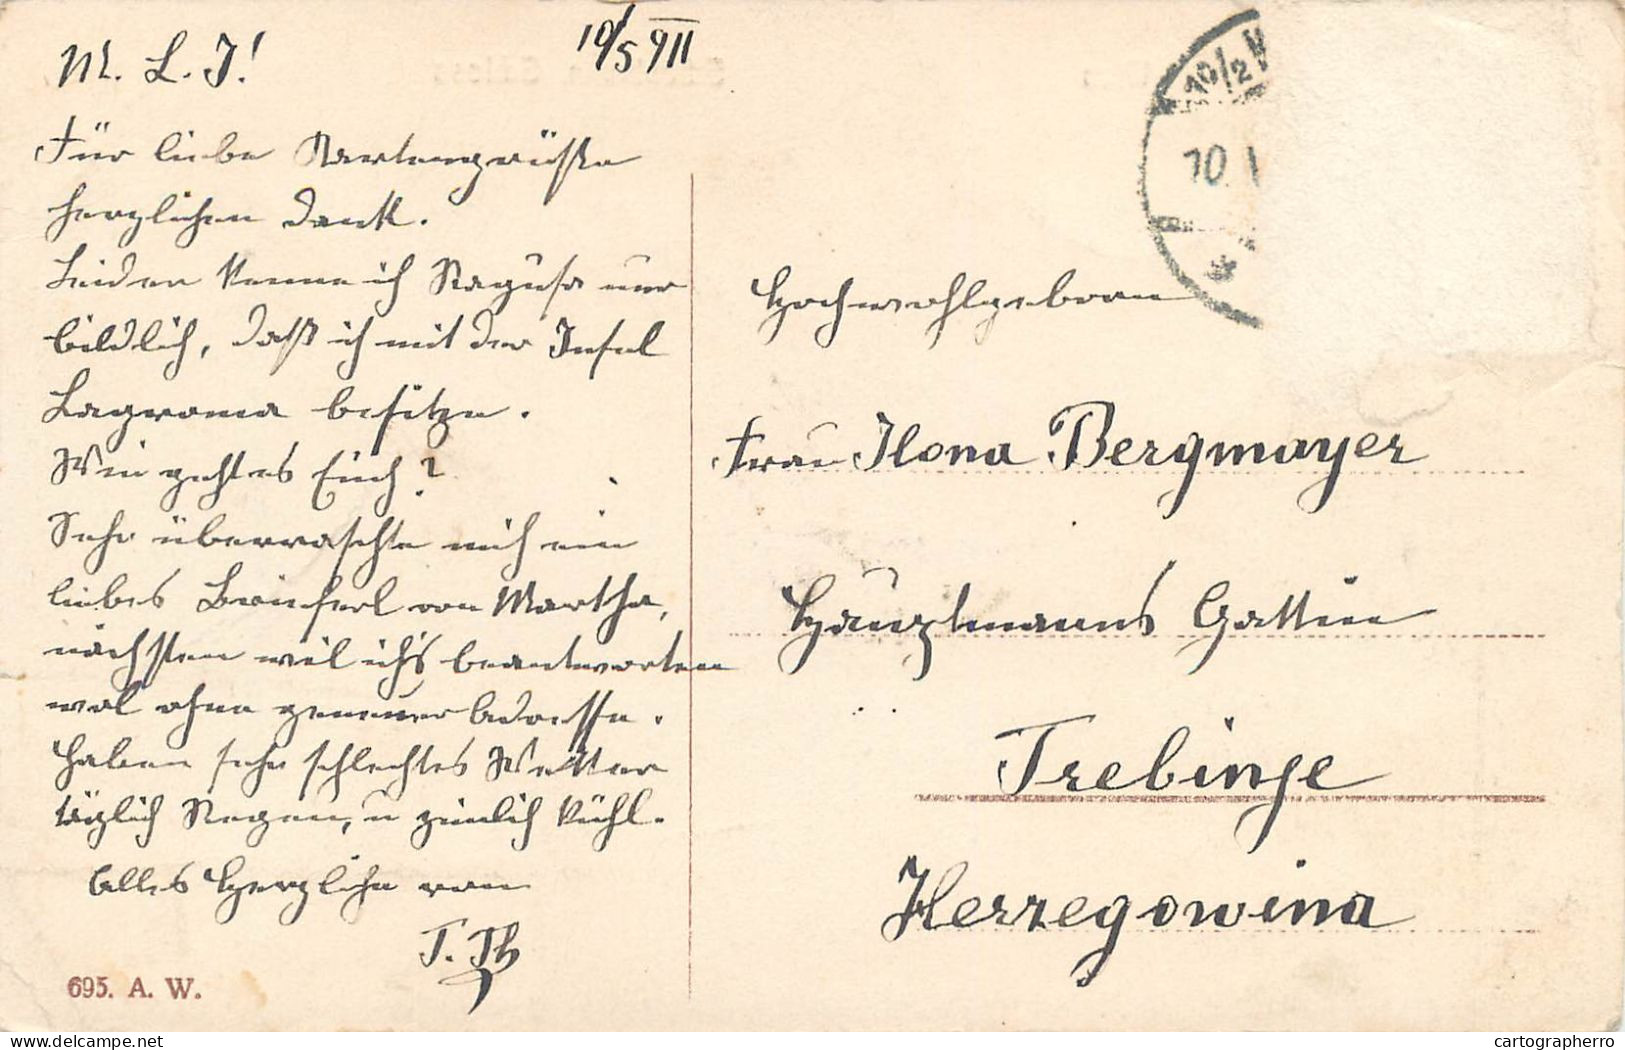 M. L. I!
10/5 911
Für liebe Kartengrüße
herzlichen Dank.
Leider kenne ich Ragusa nur
bildlich, daß ich mit der Insel
Lagroma besitze.
Wie geht es Euch?
Sehr überraschte mich ein
liebes Brieferl von Martha,
nächsten will ich's beantworten
wol ohne genauer Adresse.
Haben sehr schlechtes Wetter
täglich Regen, u zimlich kühl.
Alles Herzliche von
T. Th
695. A. W.
10/2 V
10. 
Hochwohlgeboren
Frau Ilona Bergmayer
Hauptmanns Gattin
Trebinje
Herzegowina
delcampe.net
cartographerro